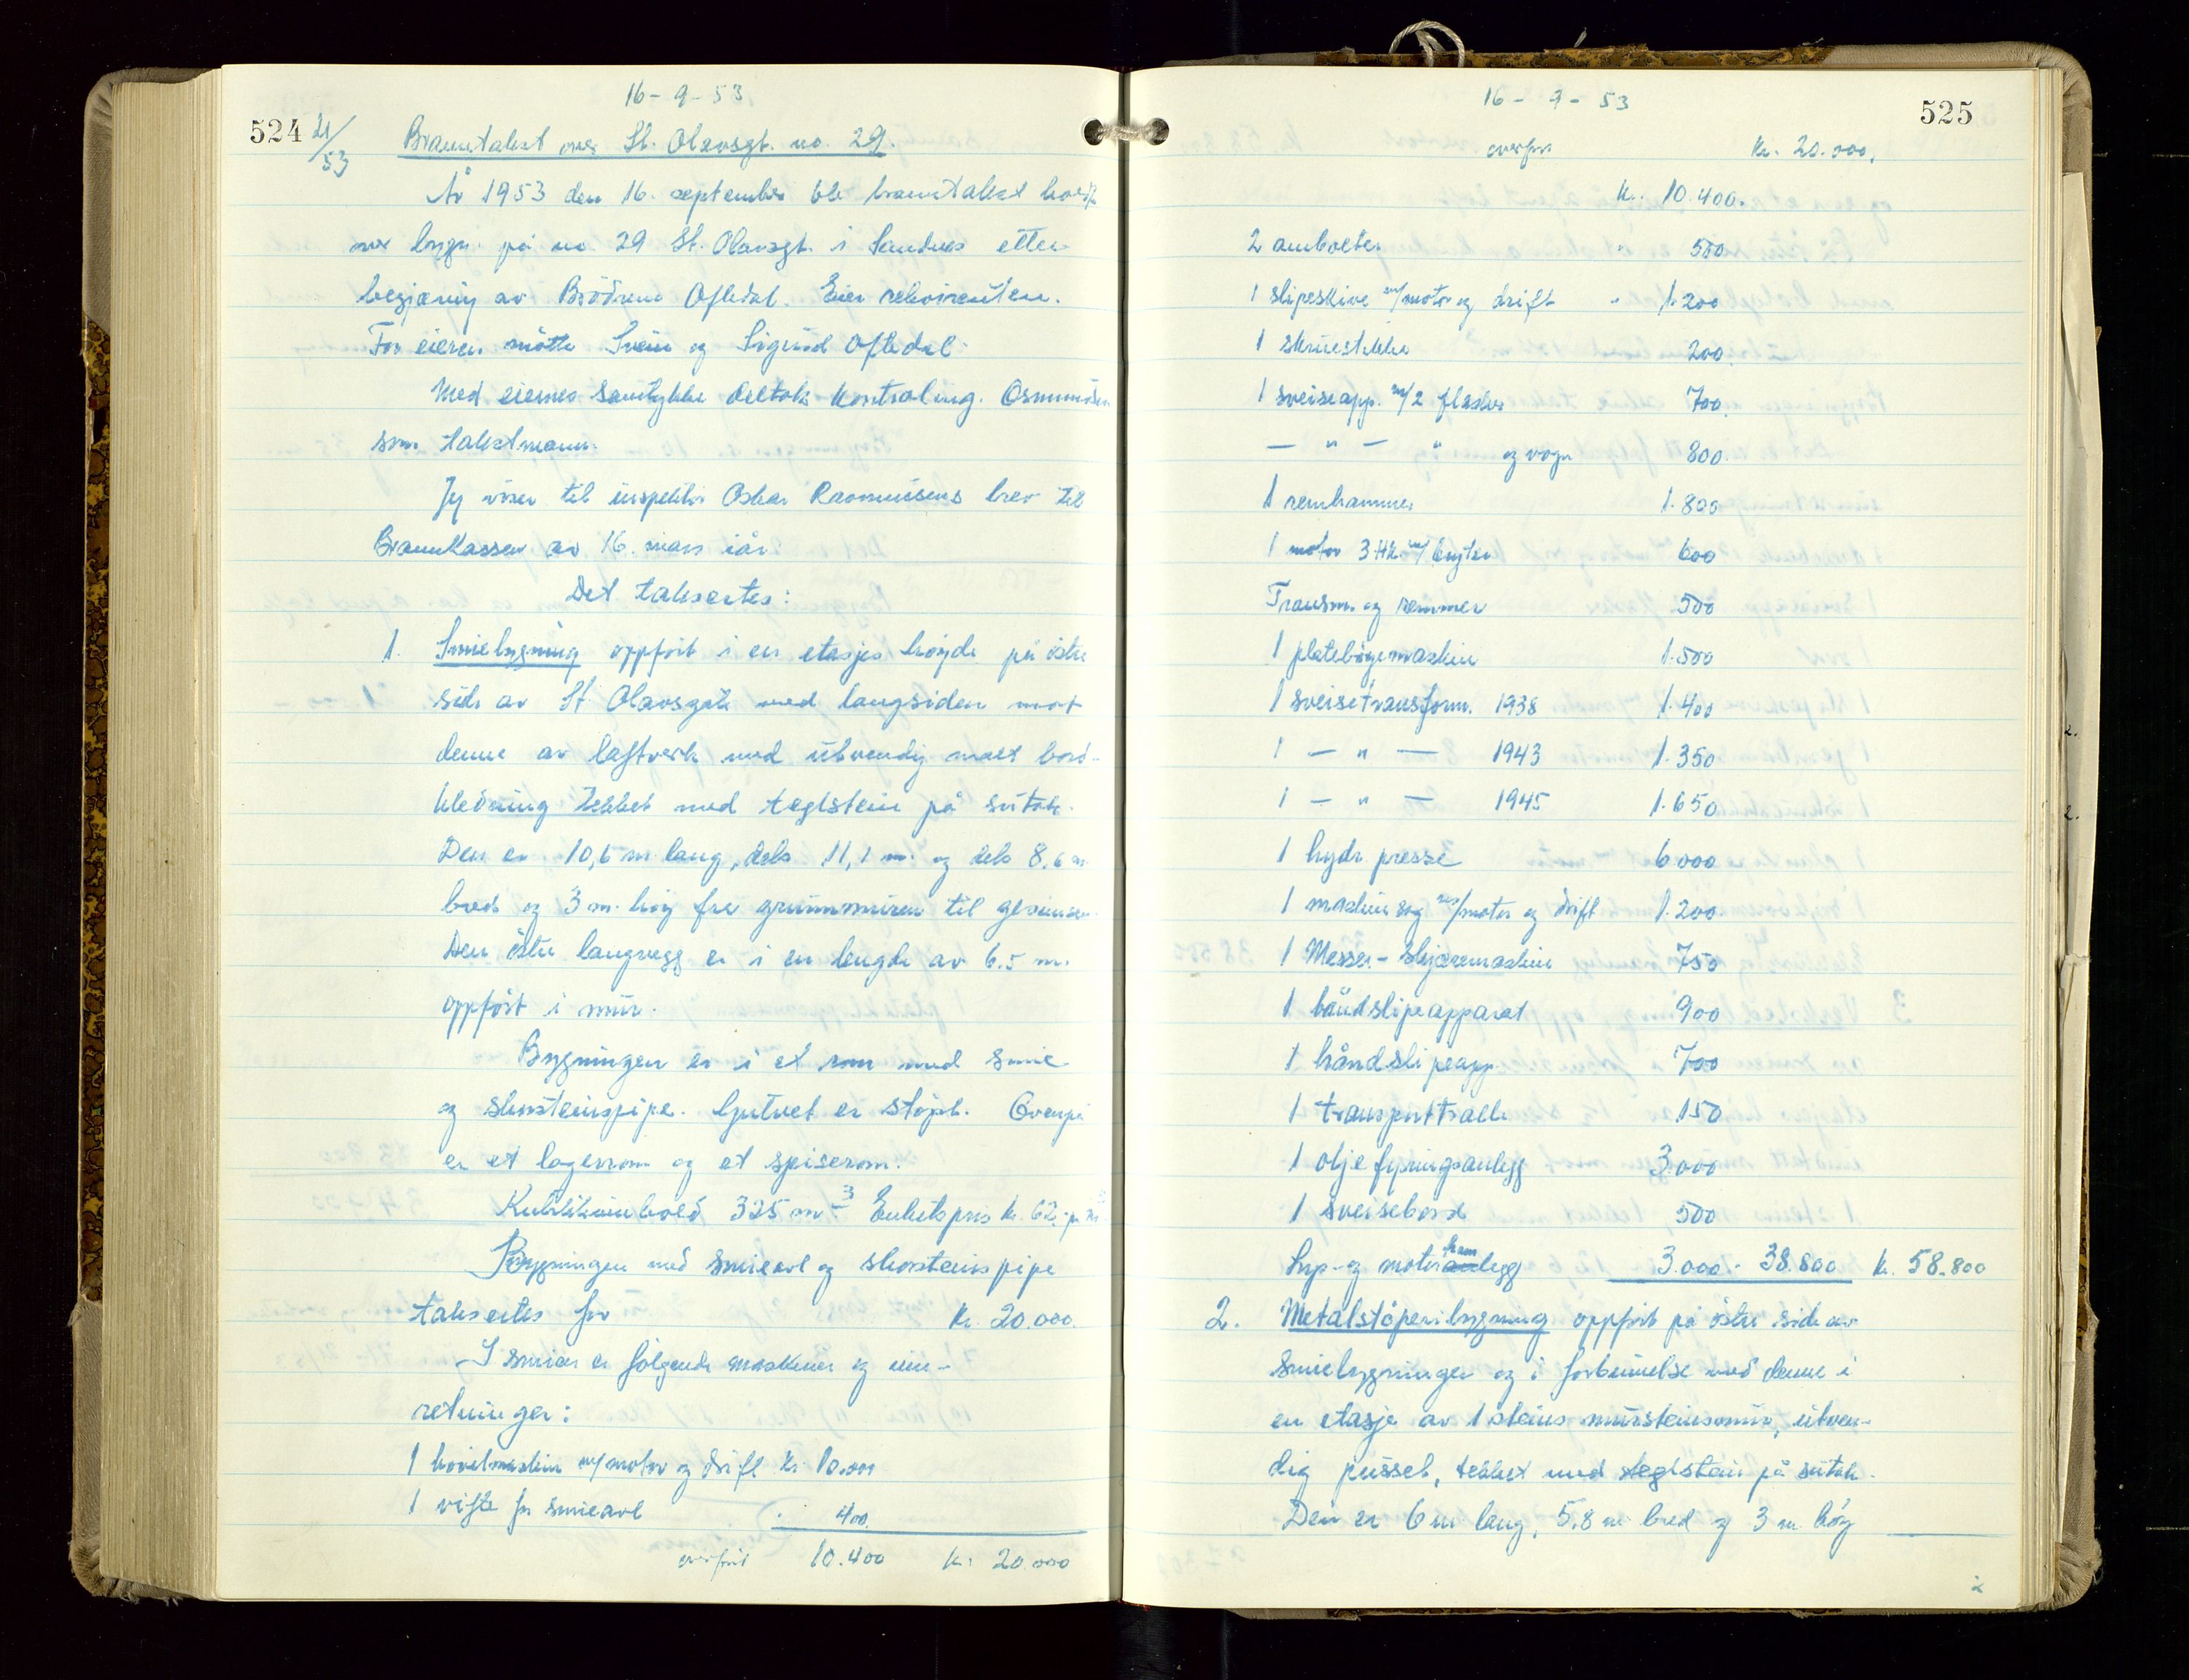 16-9-53
524 21/53
Branntakst over St. Olavsgt. no. 29.
År 1953 den 16. september ble branntakst holdt
over bygn. på no. 29 St. Olavsgt. i Sandnes etter
begjæring av Brödrene Oftedal. Eier rekvirenten.
For eieren møtte Svein og Sigurd Oftedal.
Med eiernes samtykke deltok kontroling. Osmundsen
som takstmann.
Jeg viser til inspektör Oskar Rasmussens brev til
Brannkassen av 16. mars iår.
Det taksertes:
1. Smiebygning oppfört i en etasjes höyde på östre
side av St. Olavsgate med langsiden mot
denne av laftverk med utvendig malt bord-
kledning tekket med teglstein på sutak.
Den er 10,6 m lang, dels 11,1 m. og dels 8.6 m
bred og 3 m. höy fra grunnmuren til gesimsen.
Den östre langvegg er i en lengde av 6.5 m.
oppfört i mur.
Bygningen er i et rom med smie
og skorsteinspipe. Gulvet er stöpt. Ovenpå
er et lagerrom og et spiserom.
Kubikkinnhold 325 m³ Enhetspris kr. 62,- pr m³
Bygningen med smieavl og skorsteinspipe
taksertes for kr. 20.000.
I smien er fölgende maskiner og inn-
retninger:
1 hovilmaskin m/motor og drift kr. 10.000
1 vifte for smieavl " 400.
overfört 10.400 kr. 20.000
16-9-53
525
overfört kr. 20.000,
kr. 10.400.
2 ambolter " 500
1 slipeskive m/motor og drift " 1.200
1 skruestikke 200
1 sveiseapp. m/2 flasker 700.
— " — " og vogn 800.
1 remhammer 1.800
1 motor 3 Hk. m/ bryter 600
Transm. og remmer 500
1 platebögemaskin 1.500
1 sveisetransform. 1938 1.400
1 — " — 1943 1.350
1 — " — 1945 1.650
1 hydr. presse 6.000
1 maskinsag m/motor og drift 1.200
1 Messer-Skjæremaskin 750
1 båndslipeapparat 900
1 håndslipeapp. 700
1 transporttralle 150
1 oljefyringsanlegg 3.000
1 sveisebord 500
Lys- og motoranlegg 3.000 - 38.800 kr. 58.800
2. Metalstöperibygning oppfört på östre side av
smiebygningen og i forbinnelse med denne i
en etasje av 1 steins mursteinsmur, utven-
dig pusset, tekket med teglstein på sutak.
Den er 6 m lang, 5,8 m bred og 3 m höy